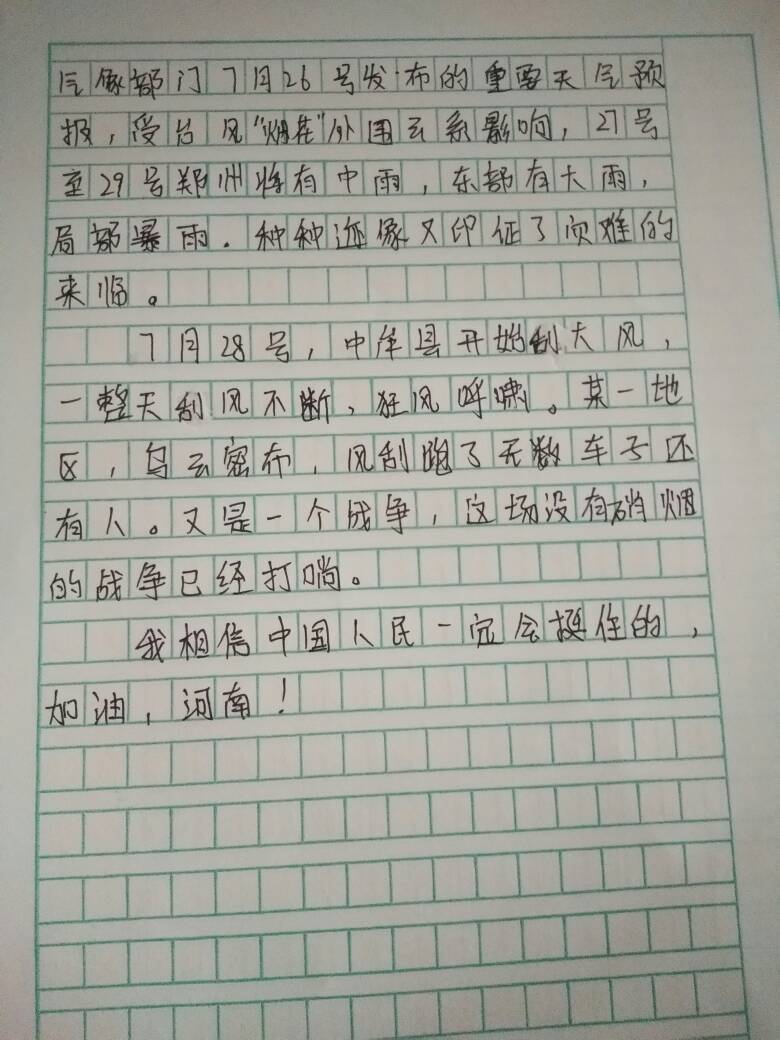 气像部门7月26号发布的重要天气预
报，受台风“烟花”外围云系影响，27号
至29号郑州将有中雨，东部有大雨，
局部暴雨．种种迹像又印征了灾难的
来临。
7月28号，中牟县开始刮大风，
一整天刮风不断，狂风呼啸。某一地
区，乌云密布，风刮跑了无数车子还
有人。又是一个战争，这场没有硝烟
的战争已经打响。
我相信中国人民一定会挺住的，
加油，河南！